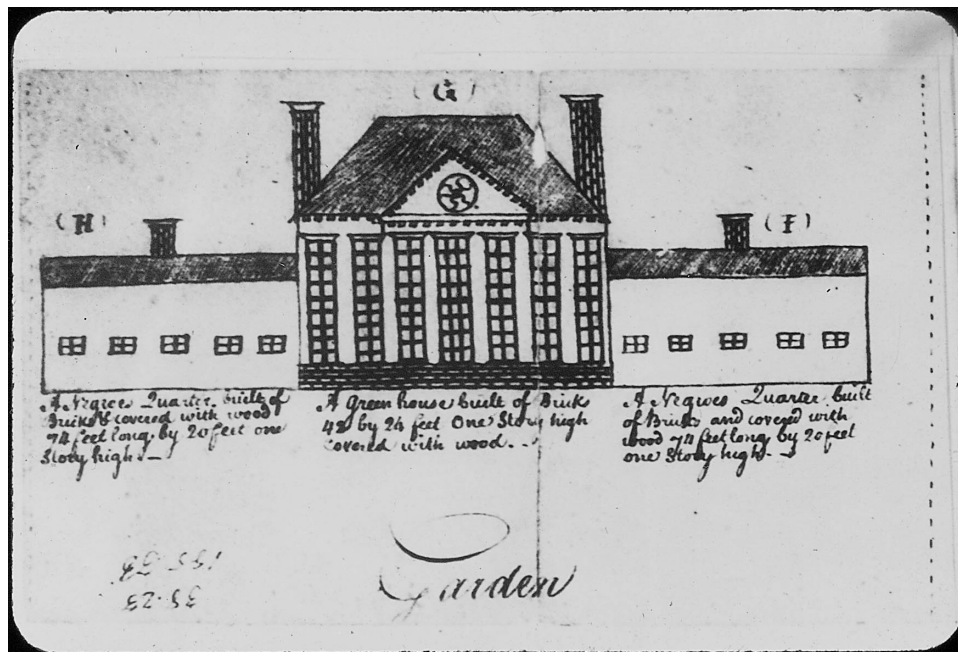 (G)
(H)
(I)
A Negroes Quarter, built of
Bricks & covered with wood
74 feet long by 20 feet one
Story high. —
A Green house built of Brick
42 by 24 feet One Story high
covered with wood. - -
A Negroes Quarter built
of Bricks and covered with
wood 74 feet long by 20 feet
one Story high. —
Garden